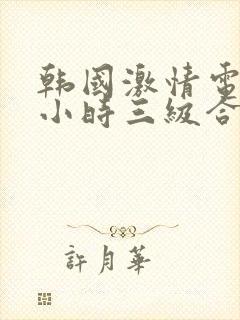 韩國激情電
小時三級合
許月華